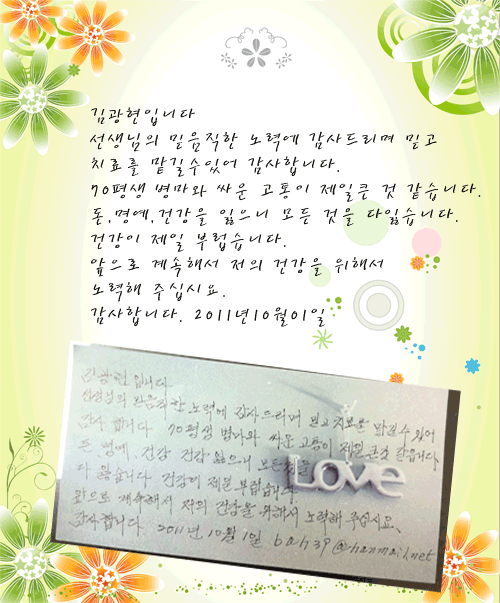 김광현입니다
선생님의 믿음직한 노력에 감사드리며 믿고
치료를 맡길수있어 감사합니다.
70평생 병마와 싸운 고통이 제일큰 것 같습니다.
돈,명예,건강을 잃으니 모든 것을 다잃습니다.
건강이 제일 부럽습니다.
앞으로 계속해서 저의 건강을 위해서
노력해 주십시요.
감사합니다. 2011년10월01일
김광현입니다.
선생님의 믿음직한 노력에 감사드리며 믿고 치료를 맡길수 있어
감사합니다. 70평생 병마와 싸운 고통이 제일큰것 같읍니다
돈 명예, 건강 건강 잃으니 모든것을
다 잃습니다 건강이 제일 부럽습니다
앞으로 계속해서 저의 건강을 위해서 노력해 주십시요.
감사합니다. 2011년 10월 1일 bah39@hanmail.net
Love